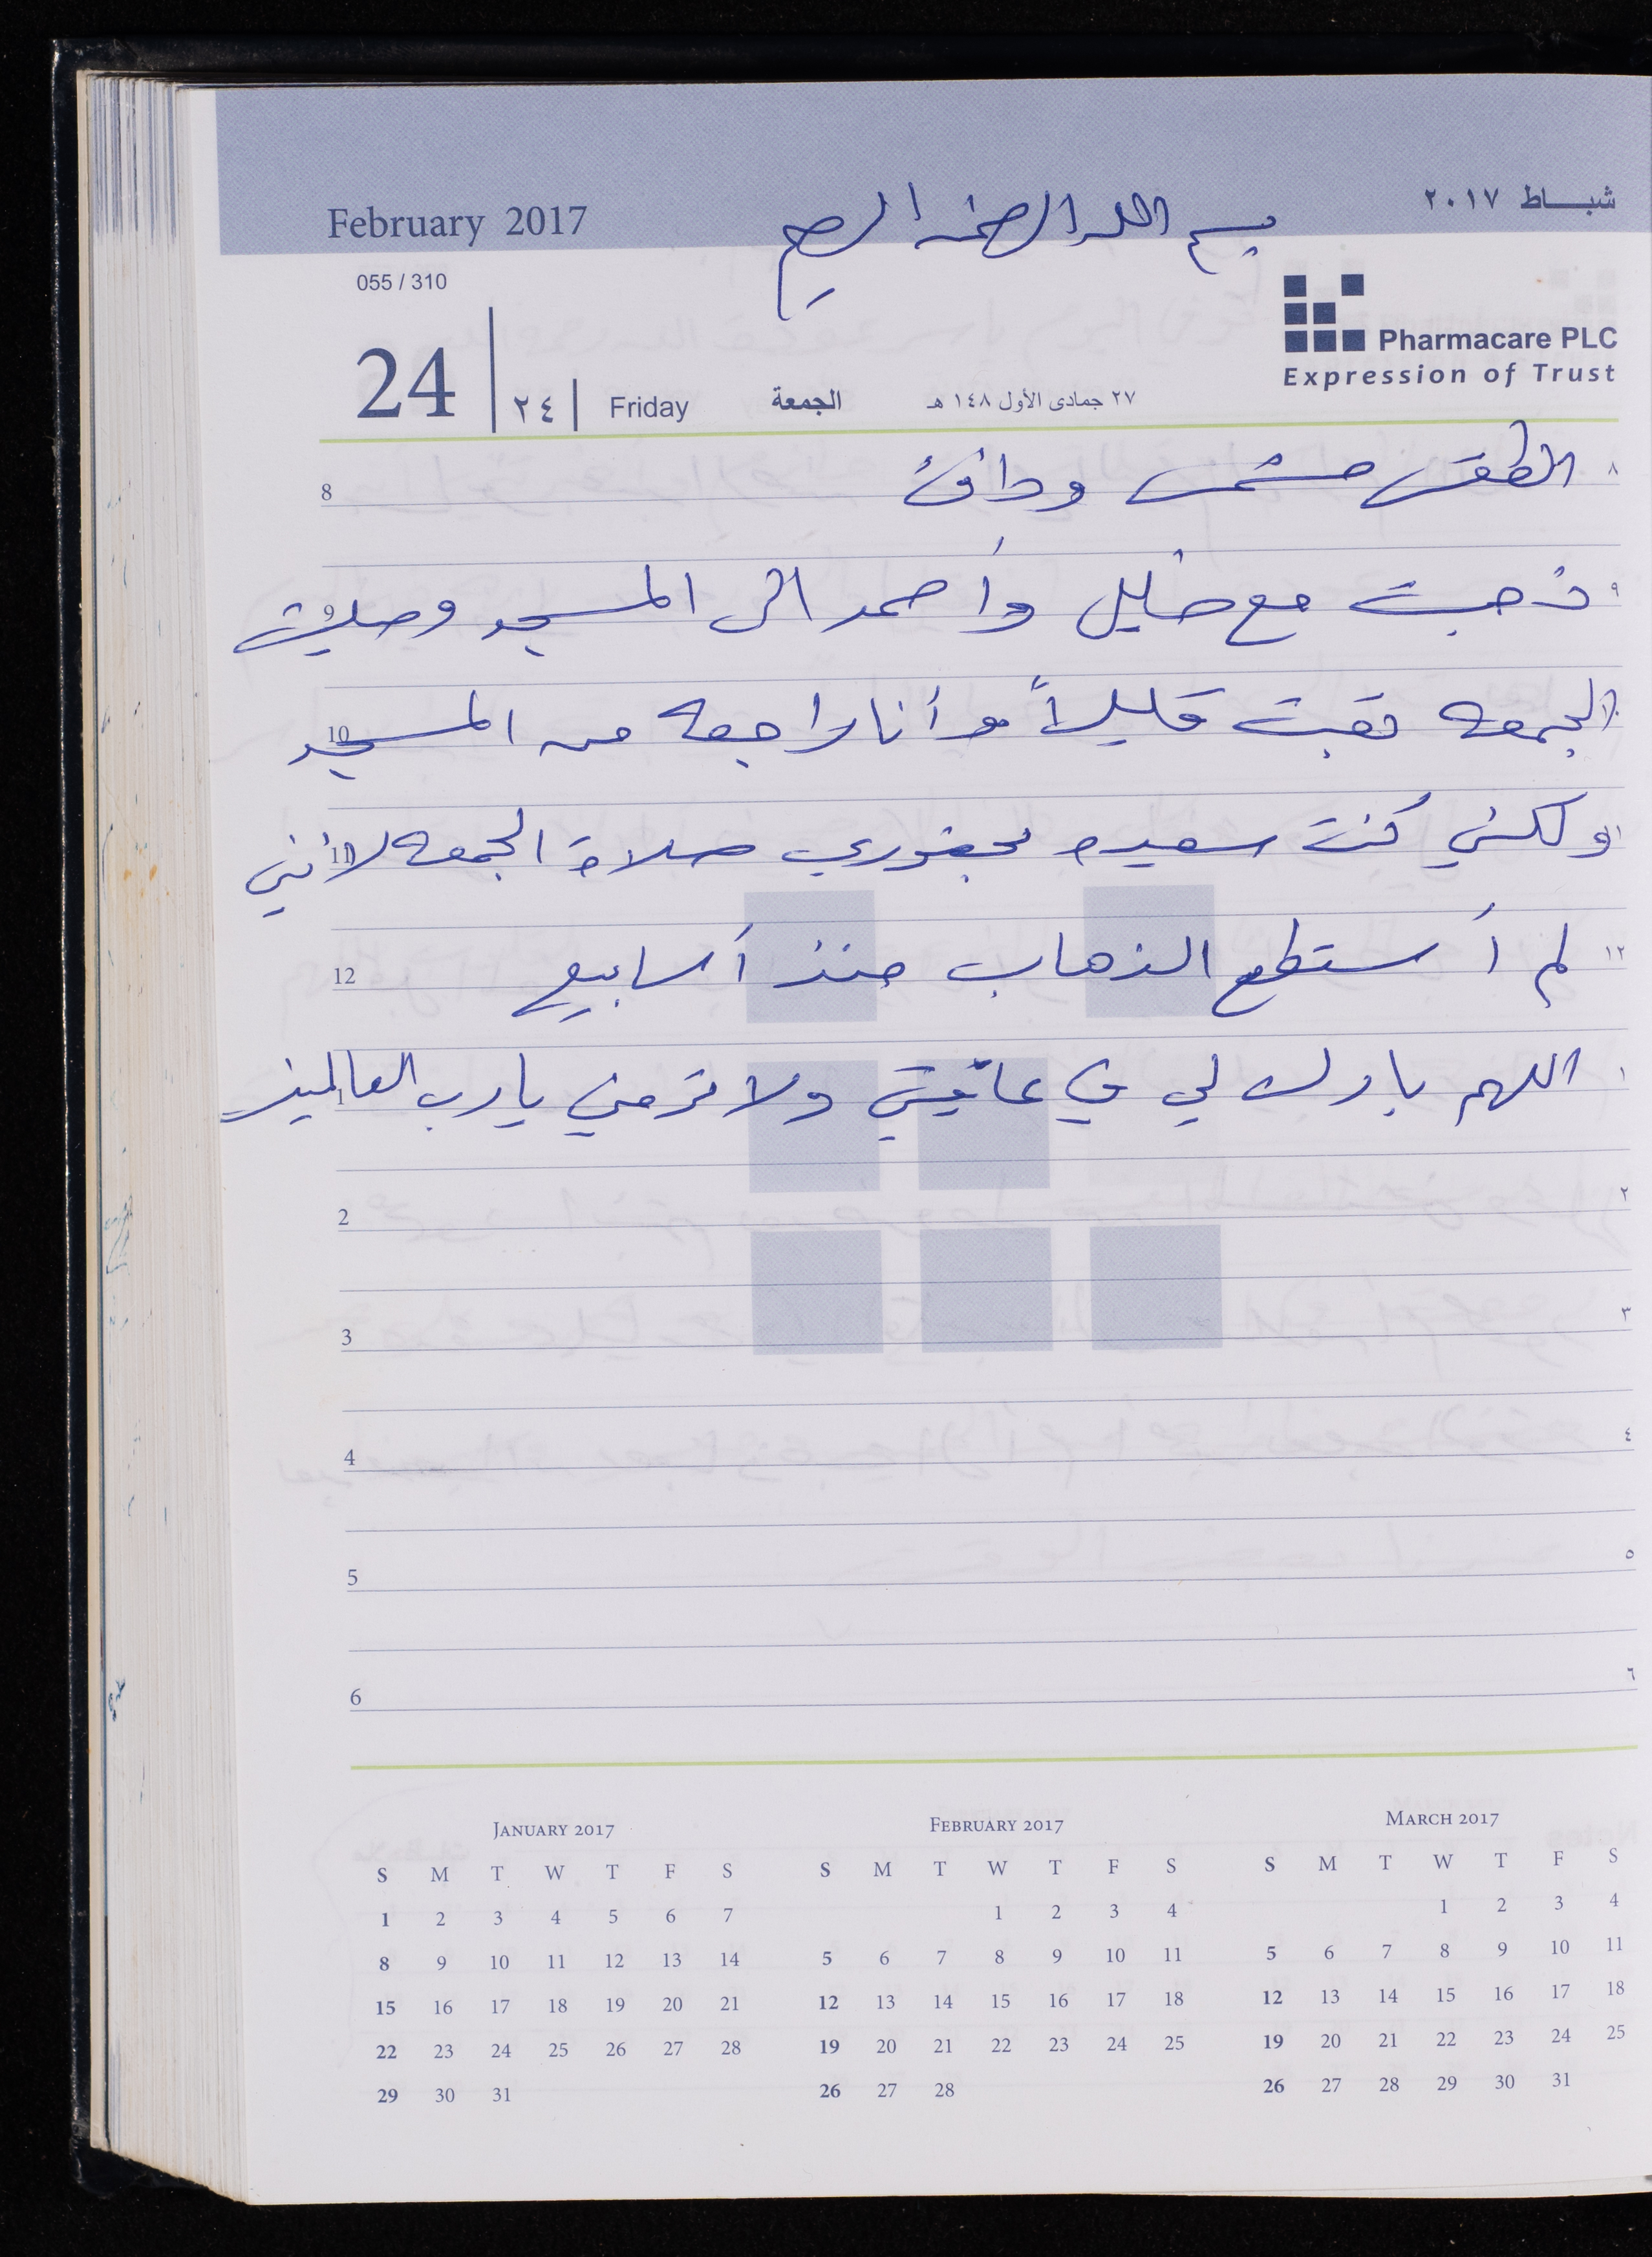 February 2017
بسم الله الرحمن الرحيم
شباط ٢٠١٧
055 / 310
Pharmacare PLC
Expression of Trust
24 ٢٤ Friday الجمعة ٢٧ جمادى الأول ١٤٨ هـ
8 الطقس مشمس ودافئ ٨
ذهبت مع خليل وأحمد الى المسجد وصليت ٩
10 الجمعه تعبت قليلاً وأنا راجعه من المسجد ١٠
11 ولكني كنت سعيده بحضوري صلاة الجمعه لأنني ١١
12 لم أستطع الذهاب منذ أسابيع ١٢
1 اللهم بارك لي في عافيتي ولا ترمني يارب العالمين ١
2 ٢
3 ٣
4 ٤
5 ٥
6 ٦
January 2017
S M T W T F S
1 2 3 4 5 6 7
8 9 10 11 12 13 14
15 16 17 18 19 20 21
22 23 24 25 26 27 28
29 30 31
February 2017
S M T W T F S
1 2 3 4
5 6 7 8 9 10 11
12 13 14 15 16 17 18
19 20 21 22 23 24 25
26 27 28
March 2017
S M T W T F S
1 2 3 4
5 6 7 8 9 10 11
12 13 14 15 16 17 18
19 20 21 22 23 24 25
26 27 28 29 30 31